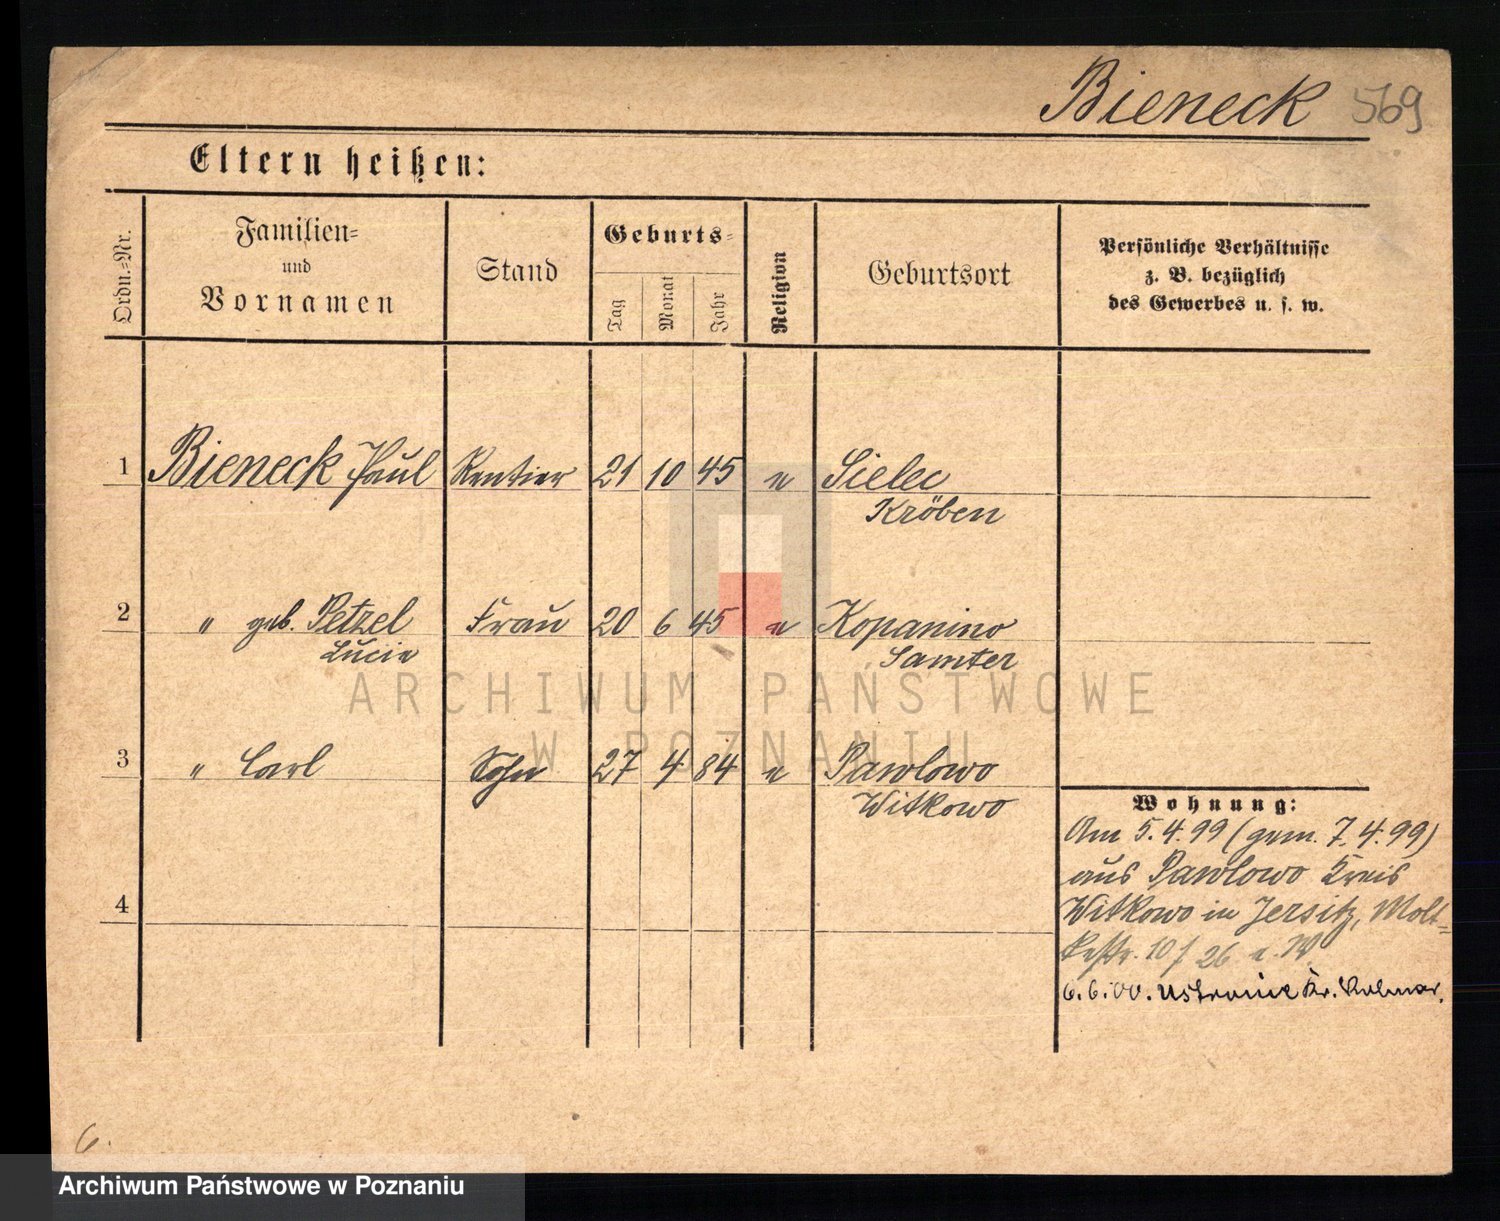 Bieneck 569
Eltern heißen:
Ordn.=Nr.
Familien=
und
Vornamen
Stand
Geburts=
Tag
Monat
Jahr
Religion
Geburtsort
Persönliche Verhältnisse
z. B. bezüglich
des Gewerbes u. s. w.
1 Bieneck Paul Rentier 21 10 45 e Sielec
Kröben
2 " geb. Petzel Frau 20 6 45 e Kopanino
Lucie Samter
3 " Carl Sohn 27 4 84 e Pawlowo
Witkowo
4
Wohnung:
Am 5.4.99 (gem. 7.4.99)
aus Pawlowo Kreis
Witkowo in Jersitz, Molt=
kestr. 10 / 26 e. W.
6.6.00. Ustronie Kr. Kolmar.
6.
ARCHIWUM PAŃSTWOWE
W POZNANIU
Archiwum Państwowe w Poznaniu